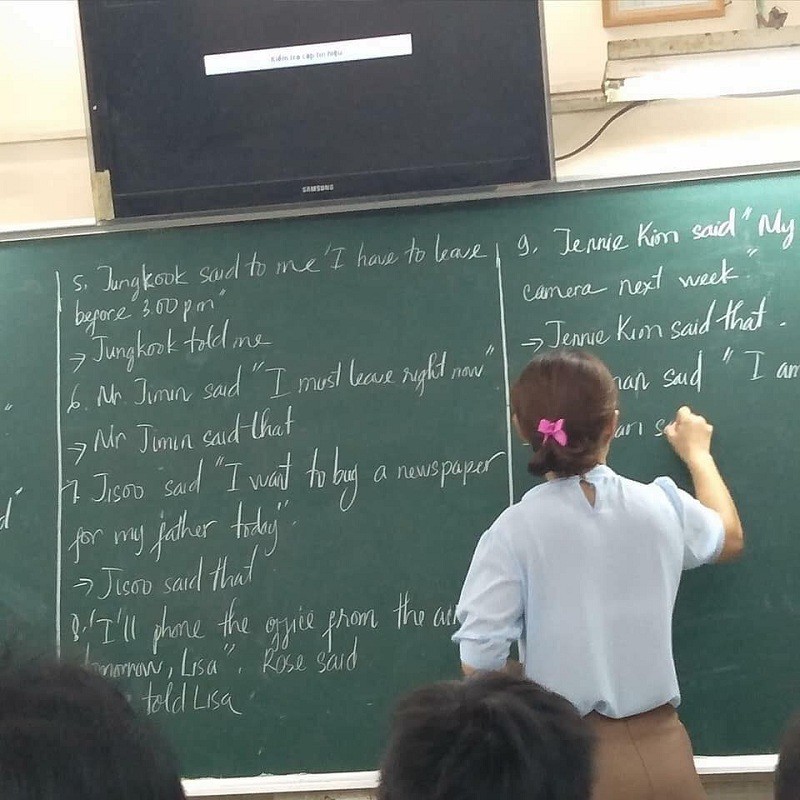 Kiểm tra cáp tín hiệu
SAMSUNG
5. Jungkook said to me "I have to leave
before 3.00 pm"
→ Jungkook told me
6. Mr. Jimin said "I must leave right now"
→ Mr Jimin said that
7. Jisoo said "I want to buy a newspaper
for my father today".
→ Jisoo said that
8. "I'll phone the office from the
tomorrow, Lisa". Rose said
told Lisa
9. Jennie Kim said "My
camera next week"
→ Jennie Kim said that.
said "I am